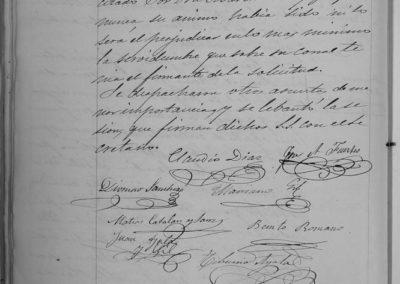 nunca su animo habia sido ni lo
será el prejudicar en lo mas minimo
la servidumbre que sobre su canal te
nia el firmante de la solicitud.
Se despacharon otros asuntos de me
nor importancia, y se levantó la se
sion, que firman dichos S.S. con el se
cretario.
Claudio Diaz
A. Fuertes
Dionisio Sanchez
Mariano Gil
Mateo Catalan y Sanz
Benito Romano
Juan
y Gil
Ayala